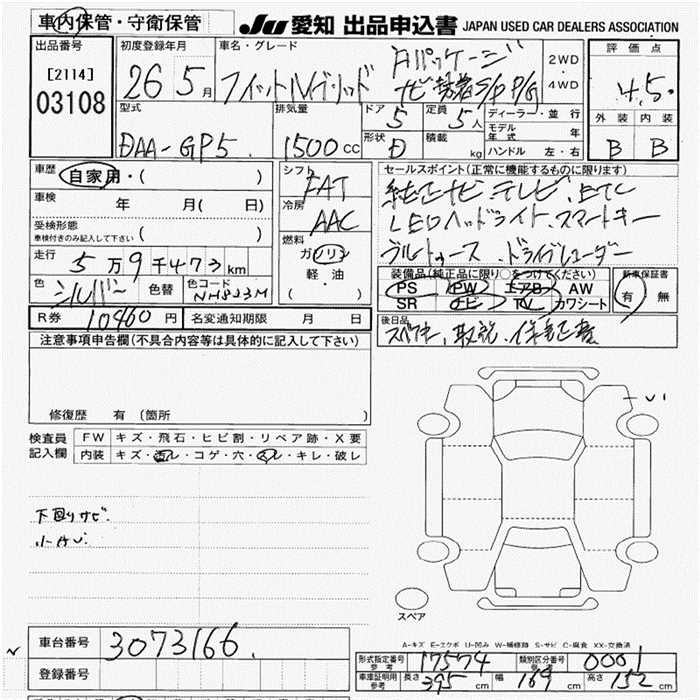 車内保管・守衛保管 JU 愛知 出品申込書 JAPAN USED CAR DEALERS ASSOCIATION
出品番号 初度登録年月 車名・グレード 2WD 評価点
[2114] 26 5月 フィットハイブリッド Fパッケージ ・
03108 ナビ装着S/P P/G 4WD 4.5
型式 排気量 ドア 定員 ディーラー・並行 外装 内装
DAA-GP5 1500cc 5 5人 モデル年式 年 B B
形状 D 積載 kg ハンドル 左・右
車歴 自家用・( ) シフト FAT セールスポイント(正常に機能するものに限ります)
車検 年 月( 日) 冷房 AAC 純正ナビ.テレビ.ETC
受検形態 ( ) LEDヘッドライト.スマートキー
車検付きのみ記入して下さい 燃料
走行 5万9千473km ガソリン ドライブレコーダー
軽・油 装備品(純正品に限り○をつけてください) 新車保証書
色 シルバー 色替 色コード NH823M ( ) PS PW エアB AW 有 無
SR ナビ TV カワシート
R券 10460円 名変通知期限 月 日 後日品
注意事項申告欄(不具合内容等は具体的に記入して下さい) スペアキー,取説,保証書
修復歴 有 (箇所
検査員 FW キズ・飛石・ヒビ割・リペア跡・X要
記入欄 内装 キズ・汚レ・コゲ・穴・スレ・キレ・破レ
下回りサビ
小キズ
スペア
A-キズ E-エクボ U-凹み W-補修跡 S-サビ C-腐食 XX-交換済
車台番号 3073166 形式指定番号 参考 17574 類別区分番号 参考 0001
登録番号 車庫証明用 参考 長さ 395cm 幅 169cm 高さ 152cm